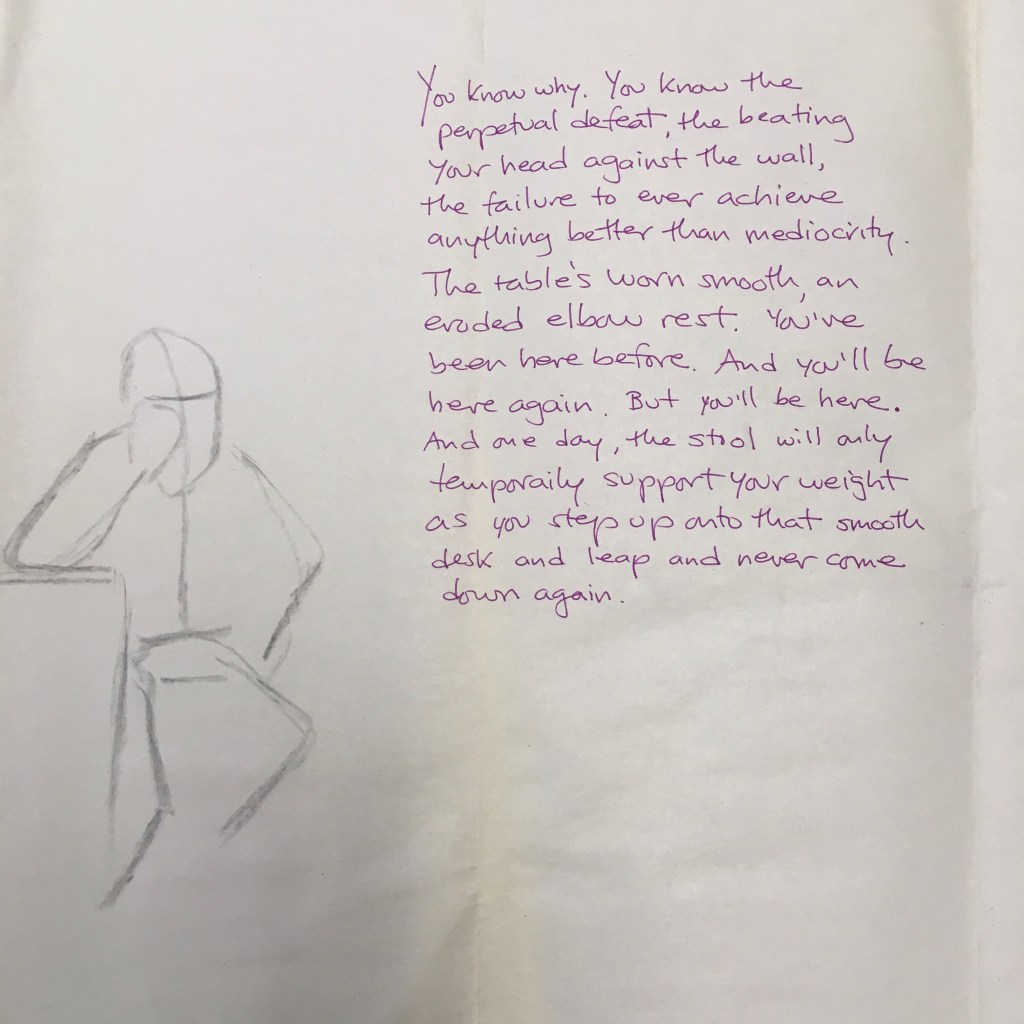 You know why. You know the
perpetual defeat, the beating
your head against the wall,
the failure to ever achieve
anything better than mediocrity.
The table's worn smooth, an
eroded elbow rest. You've
been here before. And you'll be
here again. But you'll be here.
And one day, the stool will only
temporaily support your weight
as you step up onto that smooth
desk and leap and never come
down again.